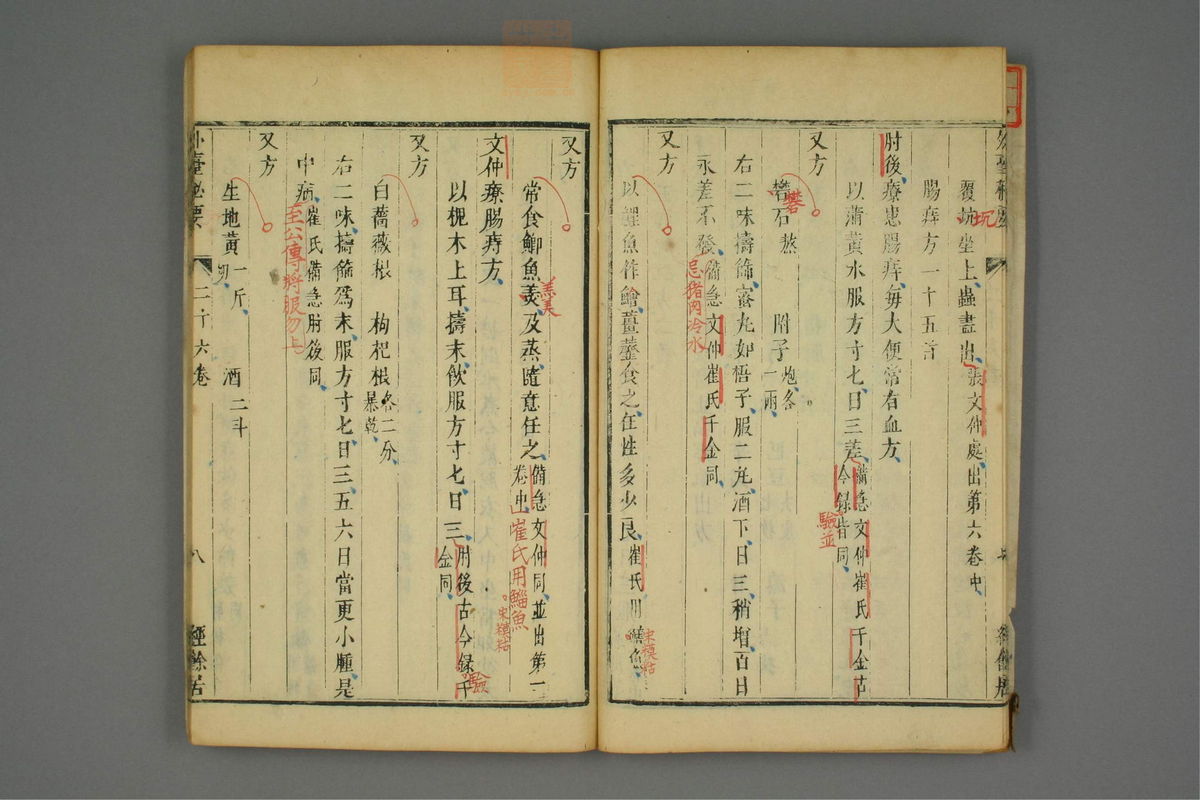 覆坑坐上蟲盡出張文仲處出第六卷中
腸痔方一十五首
肘後療患腸痔每大便常有血方
以蒲黃水服方寸匕日三差備急文仲崔氏千金古
今録皆同
驗並
又方
礬石熬 附子炮各
一兩
礬
右二味擣篩蜜丸如梧子服二丸酒下日三稍增百日
永差不發備急文仲崔氏千金同
忌猪肉冷水
又方
以鯉魚作鱠薑虀食之任性多少良崔氏用
宋模粘
又方
常食鯽魚羹及蒸隨意任之備急文仲同並出第二
卷中
崔氏用鯔魚
宋模粘
文仲療腸痔方
以槐木上耳擣末飲服方寸匕日三肘後古今録千
金同
驗
又方
白薔薇根 枸杞根各二分
暴乾
右二味擣篩為末服方寸匕日三五六日當更小腫是
中病崔氏備急肘後同
至公傳將服勿止
又方
生地黃一斤
切 酒二斗
外臺秘要 二十六卷 八 經餘居